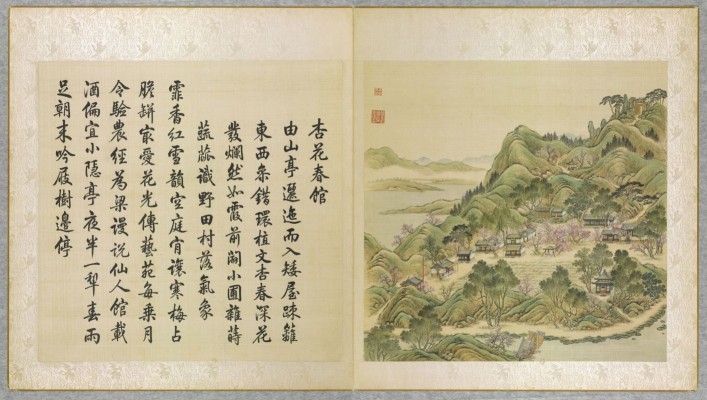 杏花春館
由山亭邐迤而入矮屋疎籬
東西叅錯環植文杏春深花
發爛然如霞前闢小圃雜蒔
蔬蓏識野田村落氣象
霏香紅雪韻空庭肯讓寒梅占
膽缾最愛花光傳藝苑每乘月
令驗農經為梁謾說仙人館載
酒偏宜小隱亭夜半一犂春雨
足朝來吟屐樹邊停